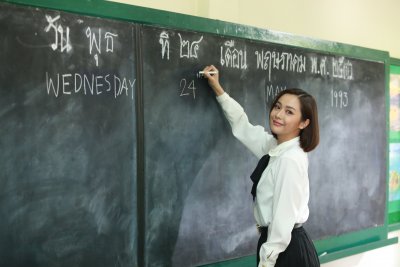 วัน พุธ ที่ ๒๔ เดือน พฤษภาคม พ.ศ. ๒๕๓๖
WEDNESDAY 24 1993